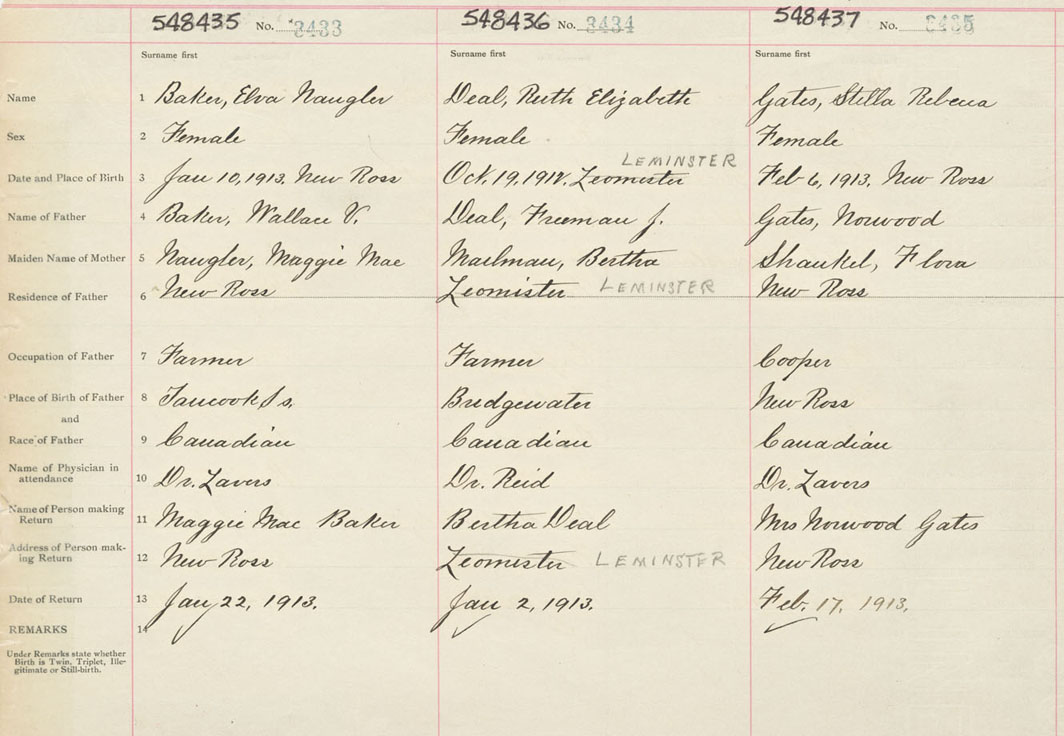 548435 No. 3433 548436 No. 3434 548437 No. 3435
Surname first Surname first Surname first
Name 1 Baker, Elva Naugler Deal, Ruth Elizabeth Gates, Stella Rebecca
Sex 2 Female Female Female
LEMINSTER
Date and Place of Birth 3 Jan 10, 1913. New Ross Oct. 19, 1912. Leomister Feb 6, 1913. New Ross
Name of Father 4 Baker, Wallace V. Deal, Freeman J. Gates, Norwood
Maiden Name of Mother 5 Naugler, Maggie Mae Mailman, Bertha Shankel, Flora
Residence of Father 6 New Ross Leomister LEMINSTER New Ross
Occupation of Father 7 Farmer Farmer Cooper
Place of Birth of Father 8 Tancook Is. Bridgewater New Ross
and
Race of Father 9 Canadian Canadian Canadian
Name of Physician in
attendance 10 Dr. Lavers Dr. Reid Dr. Lavers
Name of Person making
Return 11 Maggie Mae Baker Bertha Deal Mrs Norwood Gates
Address of Person mak-
ing Return 12 New Ross Leomister LEMINSTER New Ross
Date of Return 13 Jany 22, 1913. Jan 2, 1913. Feb. 17, 1913.
REMARKS 14
Under Remarks state whether
Birth is Twin, Triplet, Ille-
gitimate or Still-birth.